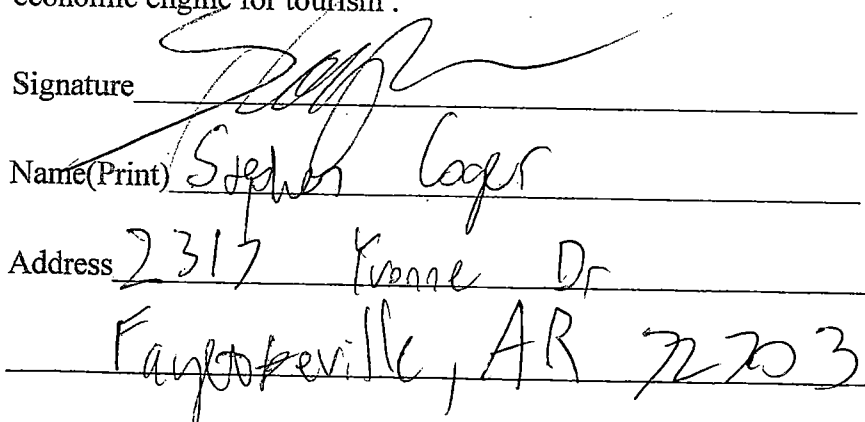 economic engine for tourism .
Signature
Name(Print) Stephen Coger
Address 2317 Yvonne Dr
Fayetteville, AR 72703